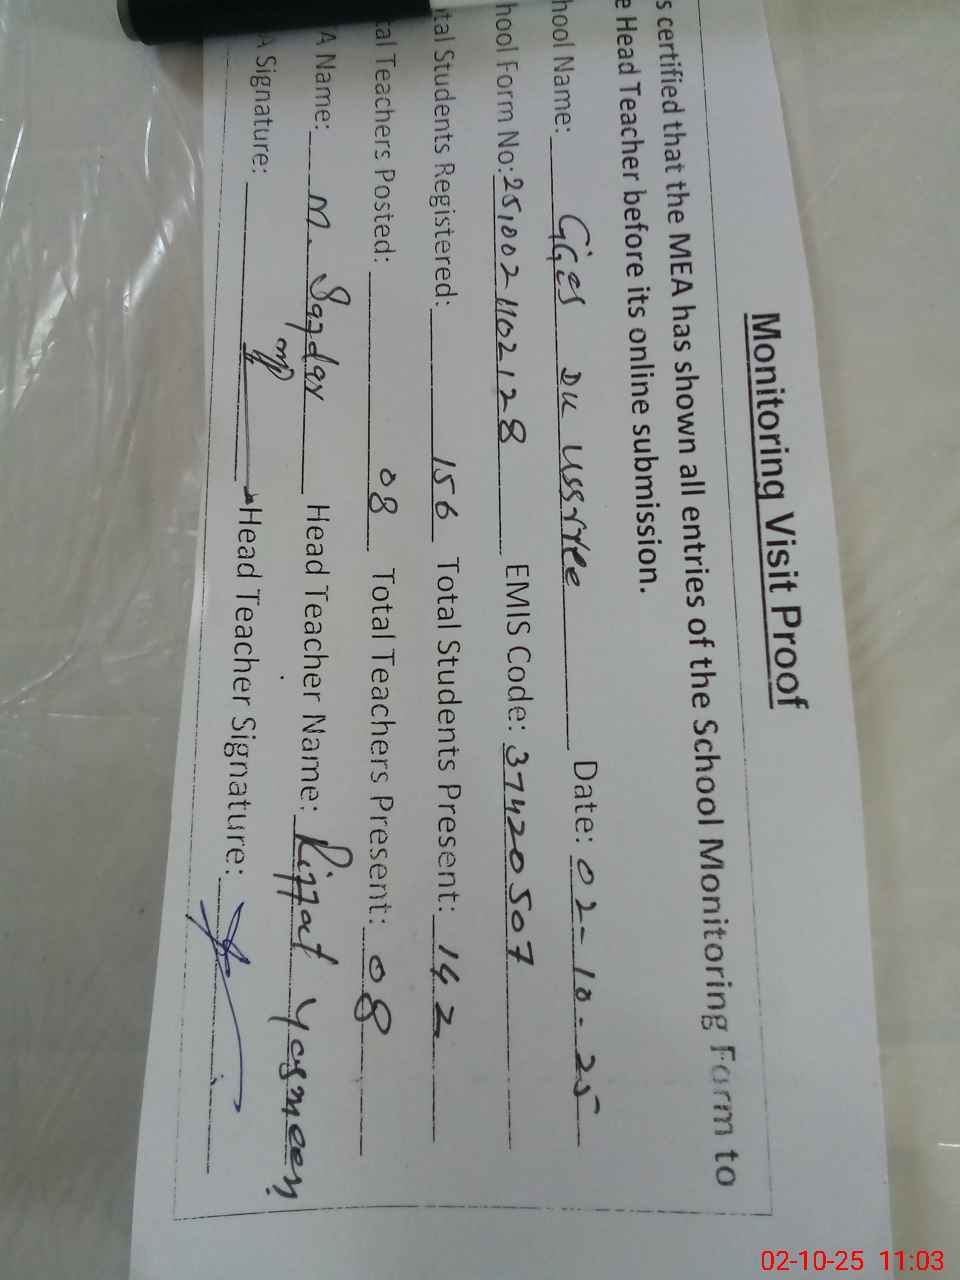 Monitoring Visit Proof
s certified that the MEA has shown all entries of the School Monitoring Form to
e Head Teacher before its online submission.
hool Name: GGES DK Date: 02-10-25
hool Form No: 2510021102128 EMIS Code: 37420507
tal Students Registered: 156 Total Students Present: 142
tal Teachers Posted: 08 Total Teachers Present: 08
A Name: M. Safdar Head Teacher Name: Riffat Yasmeen
A Signature: Head Teacher Signature:
02-10-25 11:03